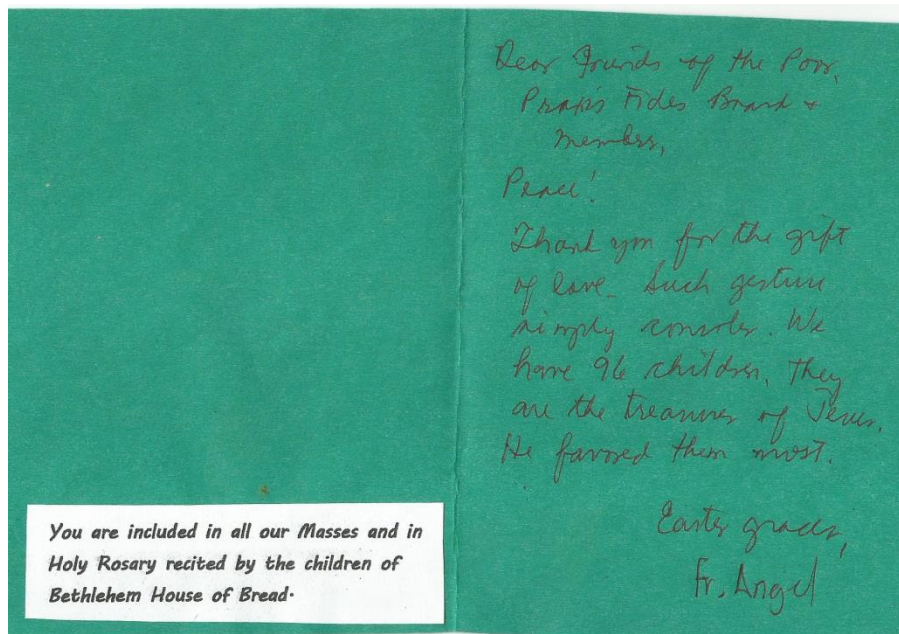 You are included in all our Masses and in
Holy Rosary recited by the children of
Bethlehem House of Bread.
Dear Friends of the Poor,
Praxis Fides Board +
members,
Peace!
Thank you for the gift
of love. Such gesture
simply consoles. We
have 96 children, they
are the treasures of Jesus.
He favored them most.
Easter graces,
Fr. Angel